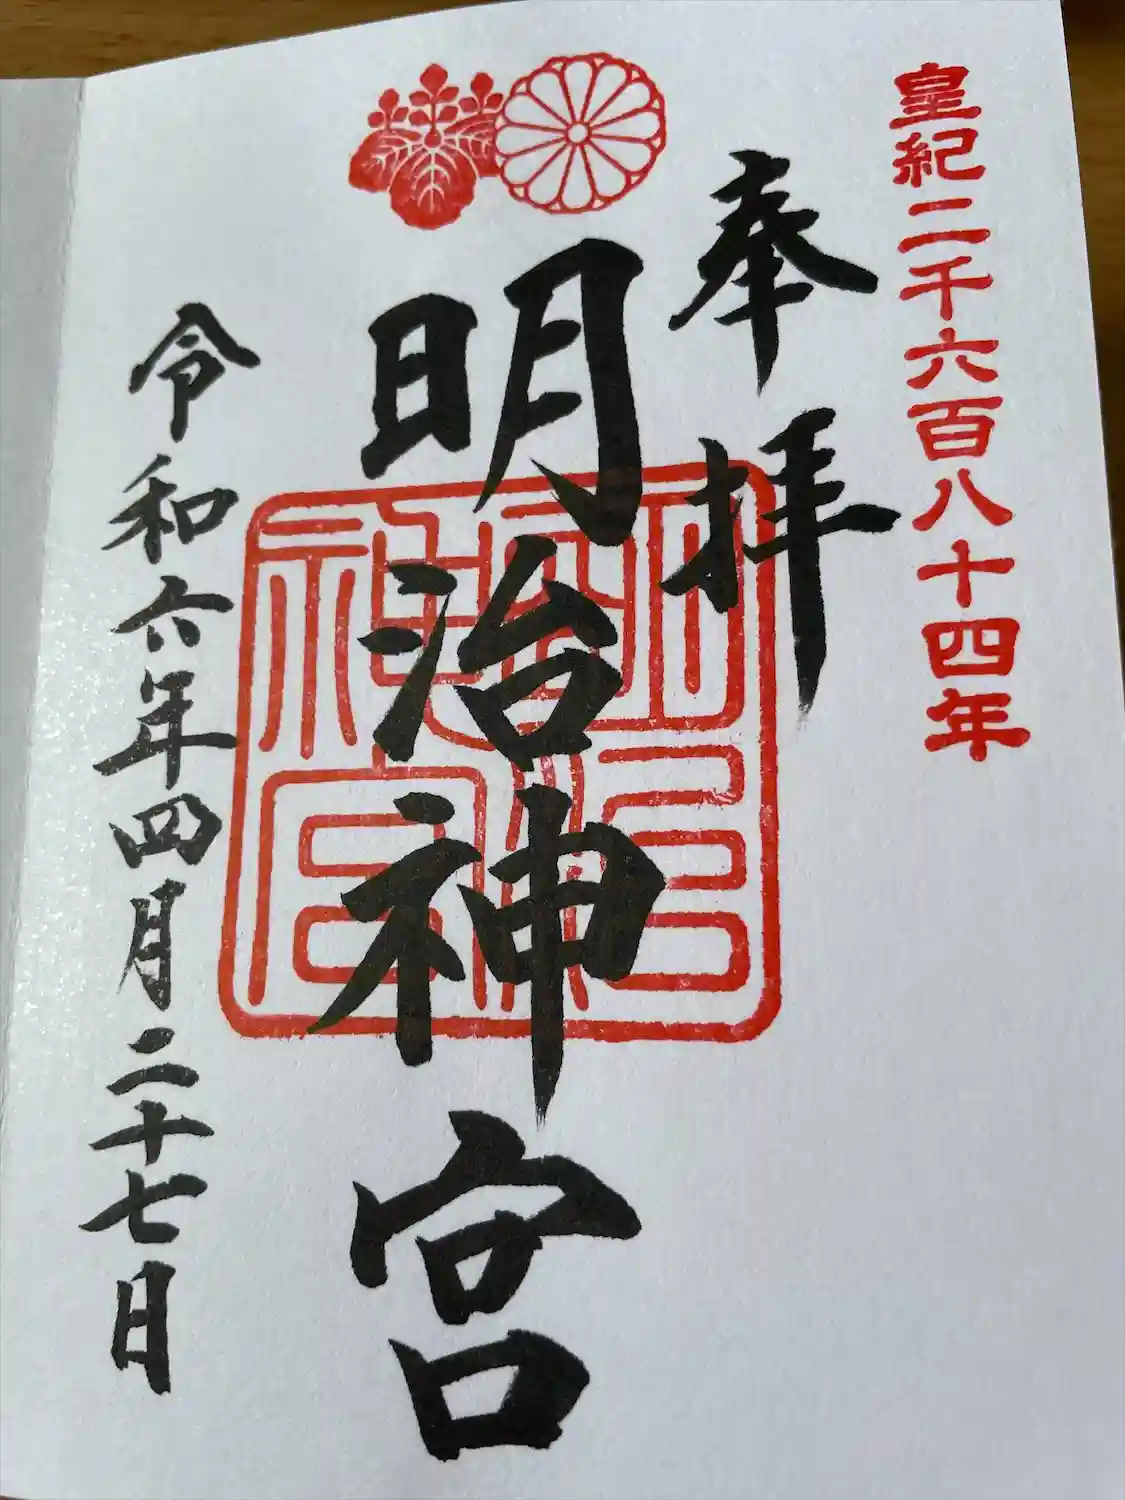 皇紀二千六百八十四年
奉拝
明治神宮
明治神宮
令和六年四月二十七日